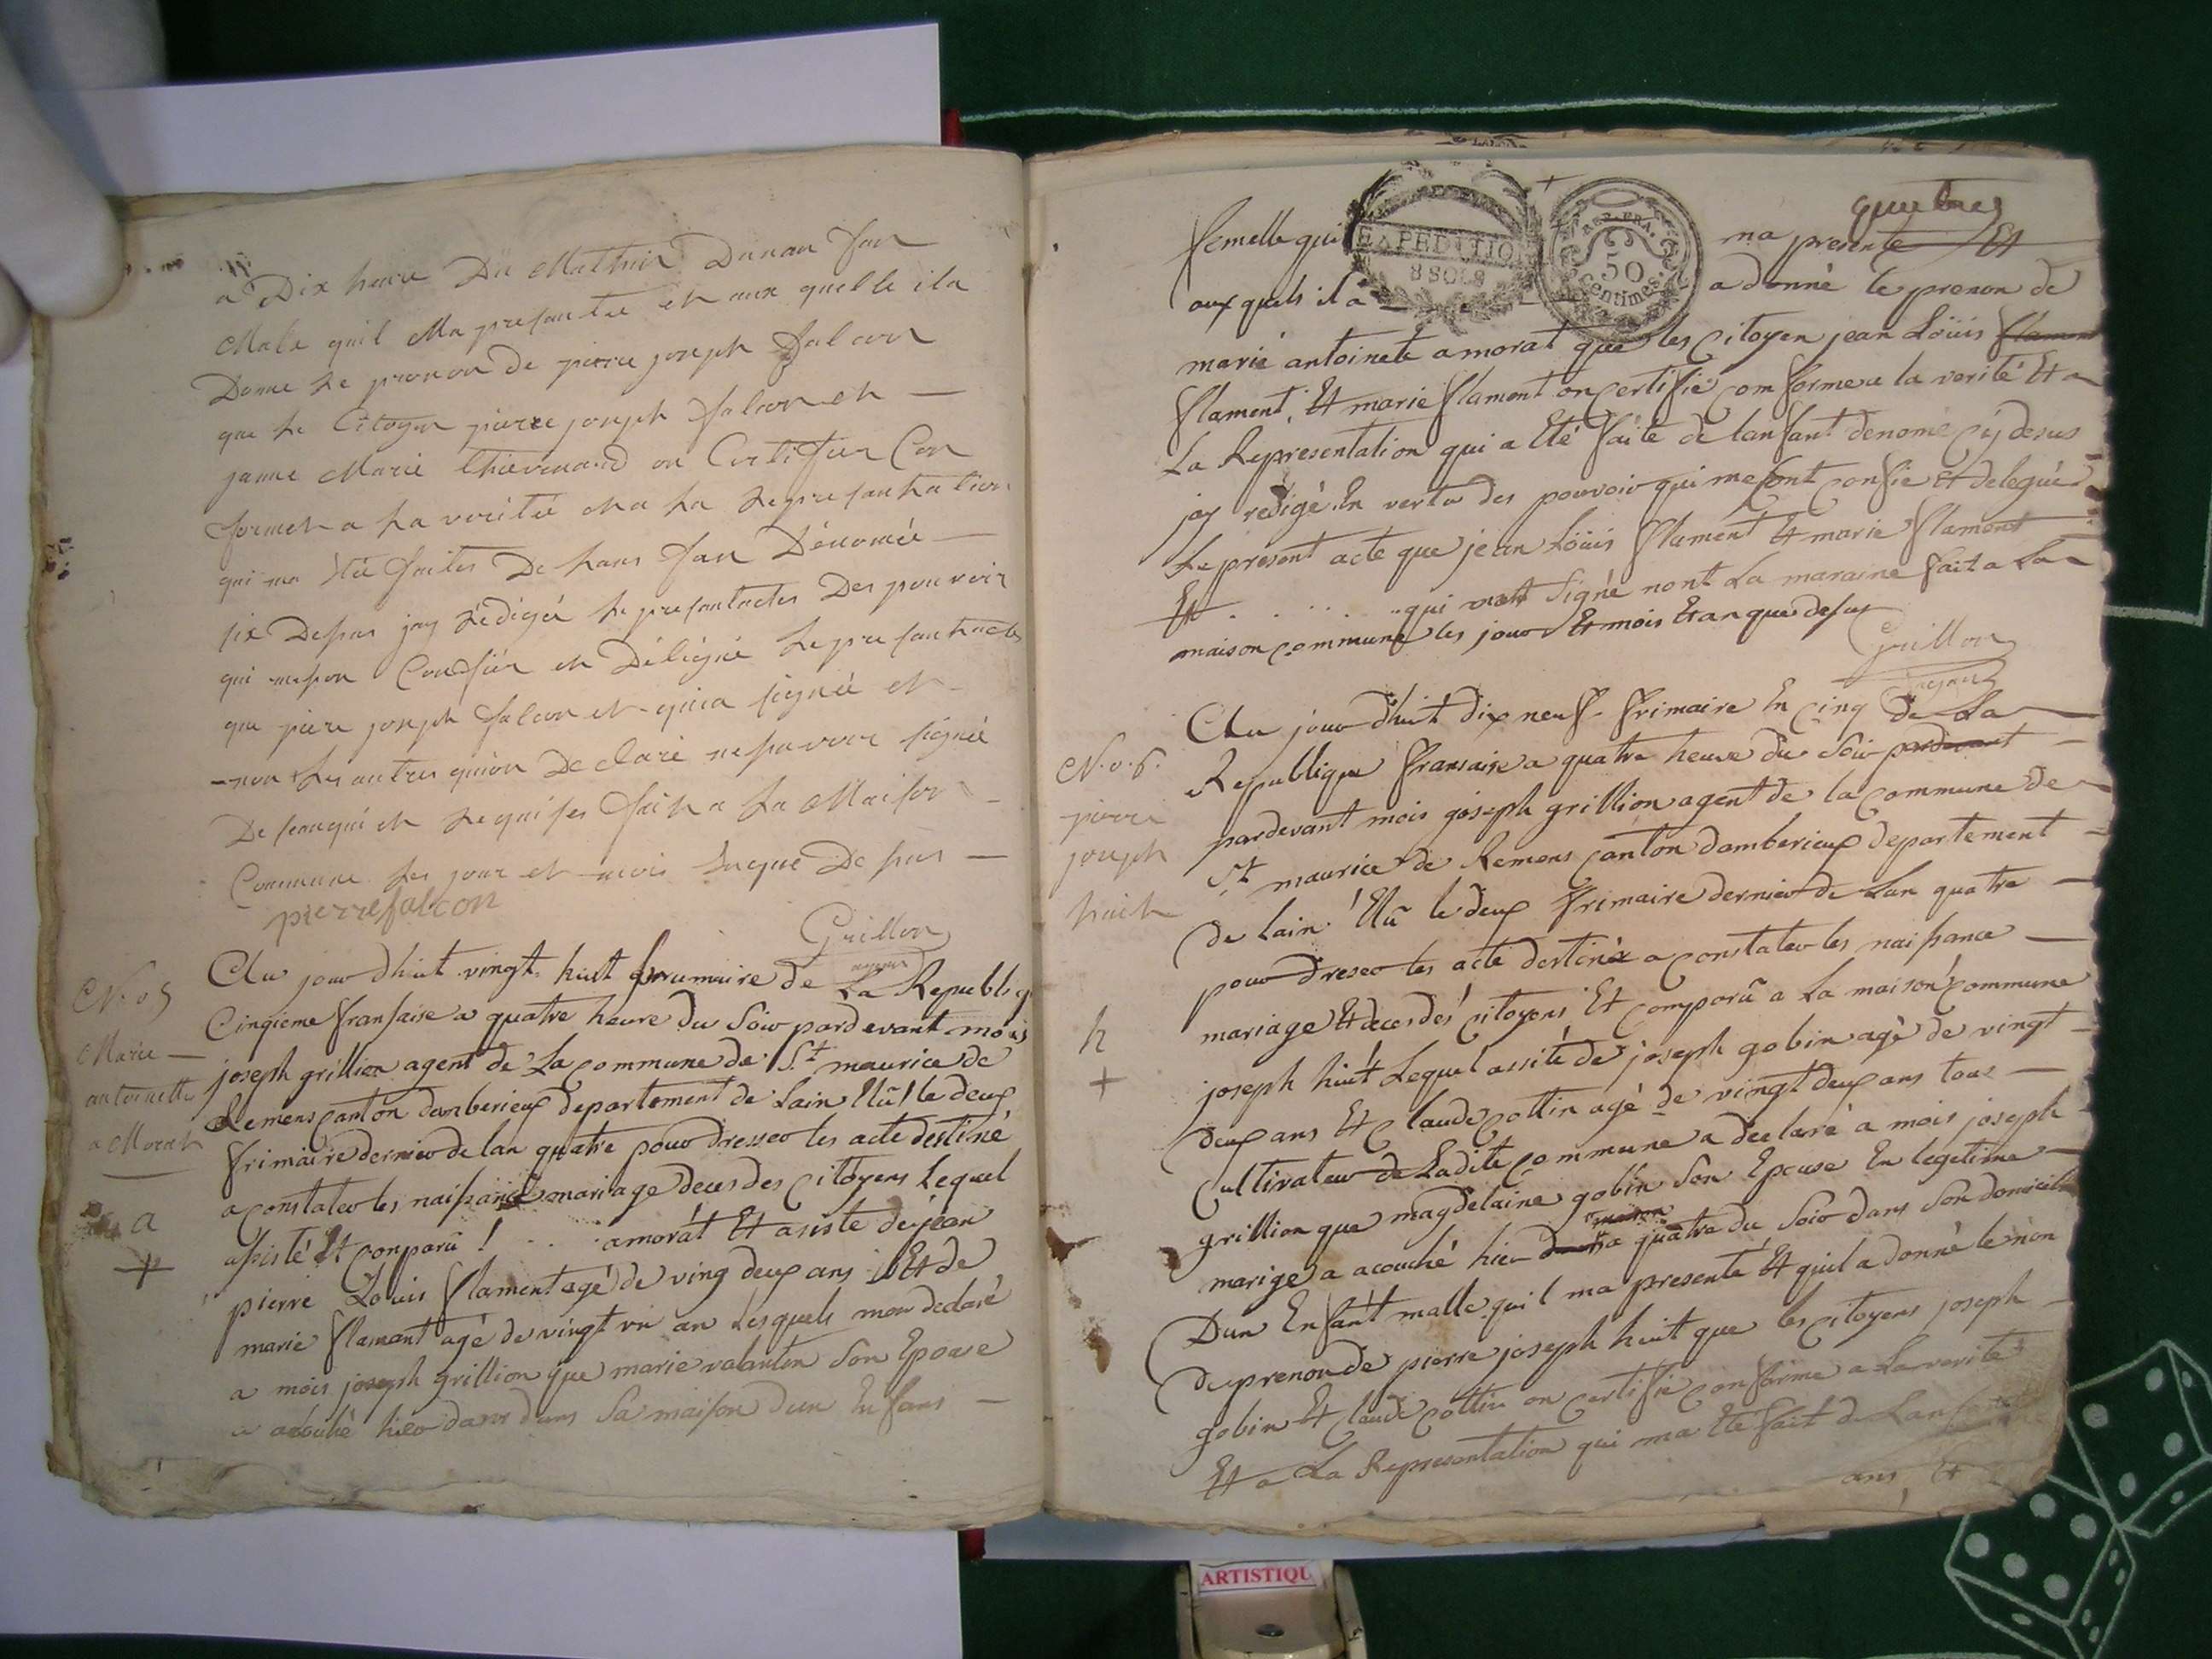 a Dix heure Du Mathin Dunan fan
Male quil Ma presantée et aux quelle ila
Donne Le pronon de pierre joseph falcon
que Le Citoyen pierre joseph falcon et
janne Marie thievenard on Certifier Con
formet a La veritée et a La Represantation
qui ma été faites De Lans fan Dénomée
six Desus jay rédigée Le presantactes Des pouvoir
qui meson Confiér et Déligué Le presantactes
que pierre joseph falcon et quia signée et
non Les autres quion Declaré nesavoir signée
De ceuqui et Requises fait a La Maison
Commune Les jour et mois Enque De sus
pierrefalcon
Grillon
agent
N. o 5
Marie
antoinette
a Morat
a
+
Au jour dhuit vingt huit brumaire de La Republiq
Cinqieme fransaise a quatre heure du Soir pardevant mois
joseph grillion agent de La commune de St maurice de
Remens canton damberieux departement de Lain Elû le deux
frimaire dernier de lan quatre pour dresser les acte destiné
a constater les naisance mariage deces des citoyens Lequel
asisté Et conparû ! . . . amorat Et asiste de jean
pierre Louis flament agé de ving deux ans Et de
marie flamant agé de vingt un an Lesquels mon declaré
a mois joseph grillion que marie valantin Son Epouse
a acouché hier dans dans Sa maison dun Enfans
quetres
femelle qui ma presenté Et
EXPEDITION
8 SOLS
REP. FRA.
50
Centimes
aux quels il a a donné le prenon de
marie antoinete amorat que les citoyen jean Loüis flament
flament, Et marie flament on certifié conformere la verité Et a
La Representation qui a Eté faite de lanfant denomé cÿ desus
jay redigé En vertu des pouvoir qui me sont confie Et delegués
Le present acte que jean Loüis flament Et marie flament
Et . . . . . qui Signé nont La maraine fait a La
maison commune les jour Et mois Et an que desus
Grillon
agent
N. o. 6.
pierre
joseph
huit
h
+
Au jour dhuit dix neuf frimaire En cinq de La
Republique fransaise a quatre heure du Soir pardevant
pardevant mois joseph grillion agent de la commune de
St maurice de Remens canton damberieux departement
de Lain Elû le deux frimaire dernier de Lan quatre
pour dreser les acte destiné a constater les naisance
mariage Et deces des citoyens Et comparû a La maison commune
joseph huit Lequel assité de joseph gobin agé de vingt
deux ans Et claude cottin agé de vingt deux ans tous
cultivateur de Ladite commune a declaré a mois joseph
grillion que magdelaine gobin Son Epouse En legetime
marige a acouché hier a quatre du Soir dans Son domicile
Dun Enfant malle quil ma presenté Et quil a donné le non
du prenon de pierre joseph huit que les citoyens joseph
gobin Et claude cottin on certifié conforme a La verité
Et a La Representation qui ma Eté fait de Lanfant
ans Et
ARTISTIQU